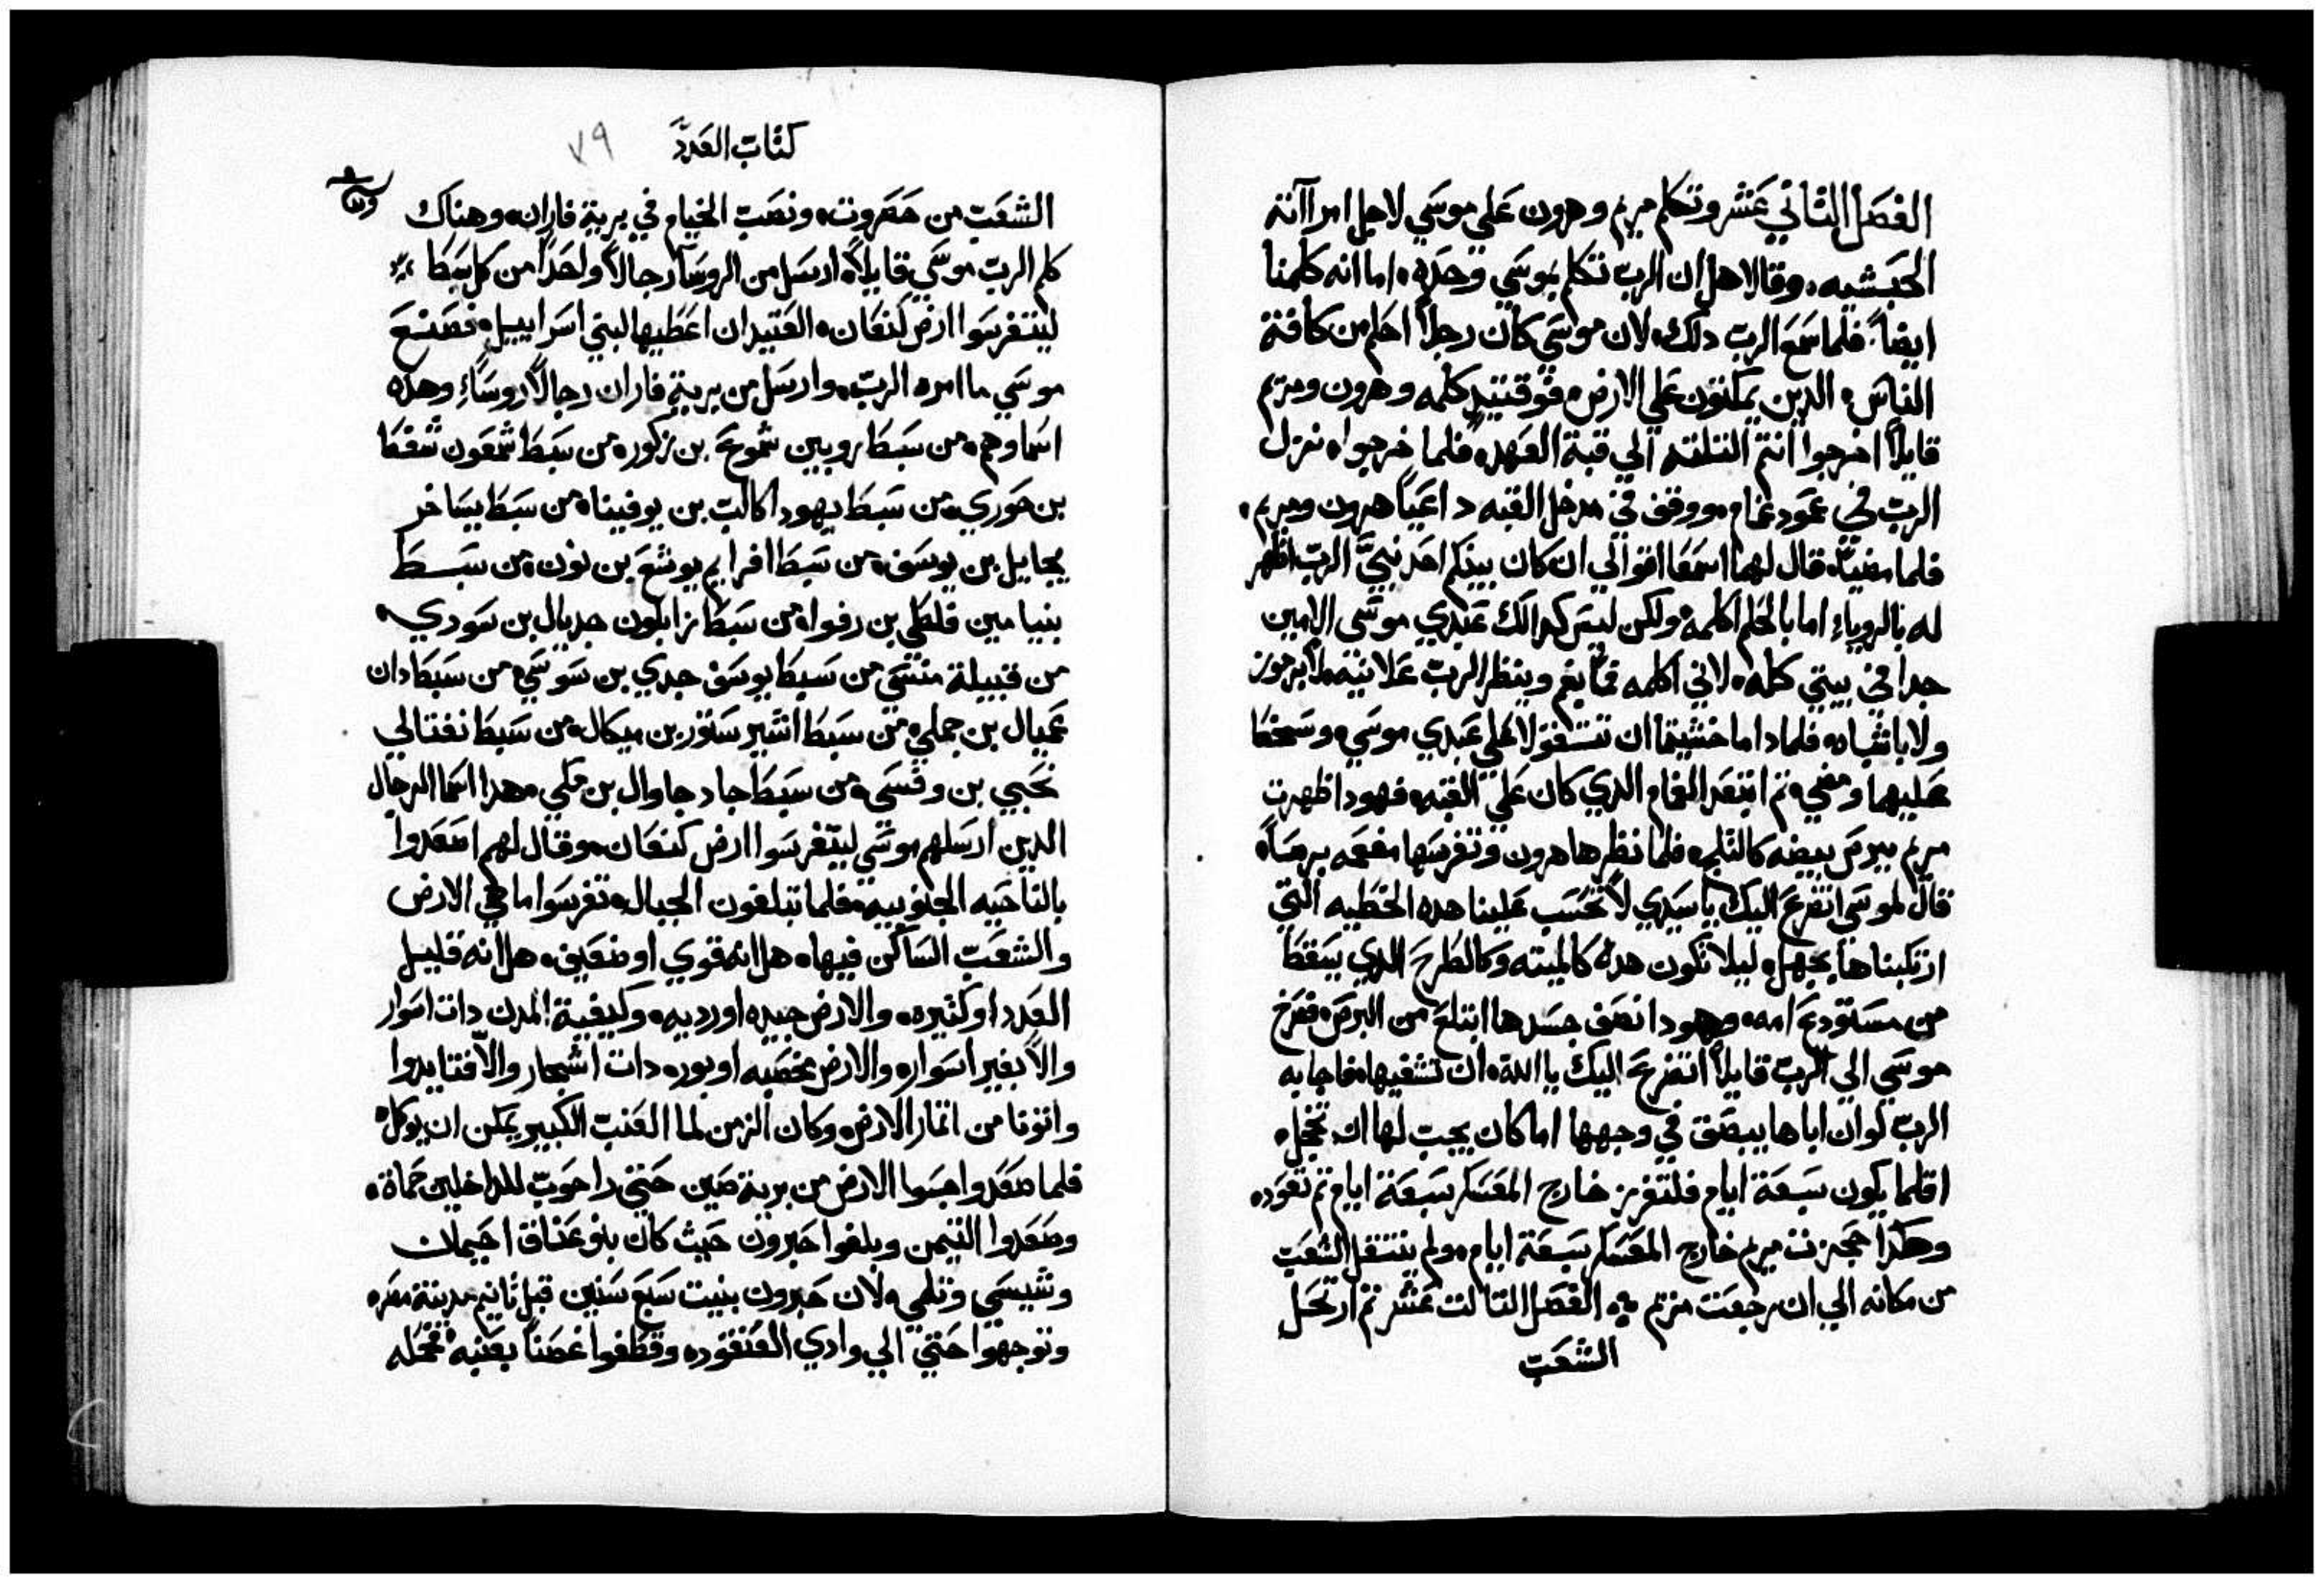 الفصل التاني عشر وتكلم مريم وهرون علي موسي لاجل امراآته
الحبشيه، وقالا هل ان الرب تكلم بموسي وحده، اما انه كلمنا
ايضاً. فلما سمع الرب دلك، لان موسي كان رجلاً احلم من كافة
الناس، الدين يمكتون علي الارض، فوقتيدٍ كلمه وهرون ومريم
قايلاً اخرجوا انتم التلته الي قبة العهد، فلما خرجوا، نزل
الرب في عمود غمام، ووقف في مدخل القبه داعياً هرون ومريم،
فلما مضيا، قال لهما اسمعا اقوالي ان كان بينكم احد نبيّ الرب اظهر
له بالروياءِ اما بالحلم اكلمه، ولكن ليس كدالك عبدي موسي الامين
جدا في بيتي كله، لاني اكلمه فماً بفم وينظر الرب علانيه، لا برموز
ولا باشباه، فلمادا ما خشيتما ان تستقولا علي عبدي موسي، وسخط
عليهما ومضي، تم ابتعد الغمام الدي كان علي القبه، فهودا ظهرت
مريم ببرص بيضه كالتلج، فلما نظرها هرون وتفرسها مفعمه برصاً،
قال لموسي اتضرع اليك يا سيدي لا تحسب علينا هده الخطيه التي
ارتكبناها بجهل، ليلا تكون هده كالميته وكالطرح الدي يسقط
من مستودع امه، وهودا نصف جسدها ابتلع من البرص، فصرخ
موسي الي الرب قايلاً اتضرع اليك يا الله، ان تشفيها، فاجابه
الرب لو ان اباها يبصق في وجهها اما كان يجب لها ان تخجل،
اقلما يكون سبعة ايام فلتفرز خارج المعسكر سبعة ايام تم تعود،
وهكدا حجزت مريم خارج المعسكر سبعة ايام، ولم ينتقل الشعب
من مكانه الي ان رجعت مريم، الفصل التالت عشر تم ارتحل
الشعب
كتاب العدد ٧٩
الشعب من حصروت، ونصب الخيام في برية فاران، وهناك
كلم الرب موسي قايلاً، ارسل من الروسآ رجالاً واحداً من كل سبط
ليتفرسوا ارض كنعان، العتيد ان اعطيها لبني اسراييل، فصنع
موسي ما امره الرب، وارسل من برية فاران رجالاً روساءِ وهده
اسماوهم، من سبط روبين شموع بن زكور، من سبط شمعون شفط
بن حوري، من سبط يهودا كالب بن يوفينا، من سبط يساخر
يجايل بن يوسف، من سبط افرايم يوشع بن نون، من سبط
بنيامين فلطي بن رفوا، من سبط زابلون جديال بن سودي،
من قبيلة منسي من سبط يوسف جدي بن سوسي، من سبط دان
عميال بن جملي، من سبط اشير ستور بن ميكال، من سبط نفتالي
نحبي بن وفسي، من سبط جاد جاوال بن مكي، هدا اسما الرجال
الدين ارسلهم موسي ليتفرسوا ارض كنعان، وقال لهم اصعدوا
بالناحيه الجنوبيه، فلما تبلغون الجبال، تفرسوا ما هي الارض
والشعب الساكن فيها، هل انه قوي او ضعيف، هل انه قليل
العدد او كتيره، والارض جيده او رديه، وكيفية المدن دات اسوار
والا بغير اسوار، والارض مخصبه او بوره، دات اشجار والا فتايدوا
واتونا من اتمار الارض، وكان الزمن لما العنب الكبير يمكن ان يوكل،
فلما صعدوا جسوا الارض من برية صين حتي راحوب للداخلين حماة،
وصعدوا التيمن وبلغوا حبرون حيث كان بنو عناق احيمان
وشيسي وتلمي، لان حبرون بنيت سبع سنين قبل تانيم مدينة مصر،
وتوجهوا حتي الي وادي العنقود، وقطفوا غصناً بعنبه، فحمله